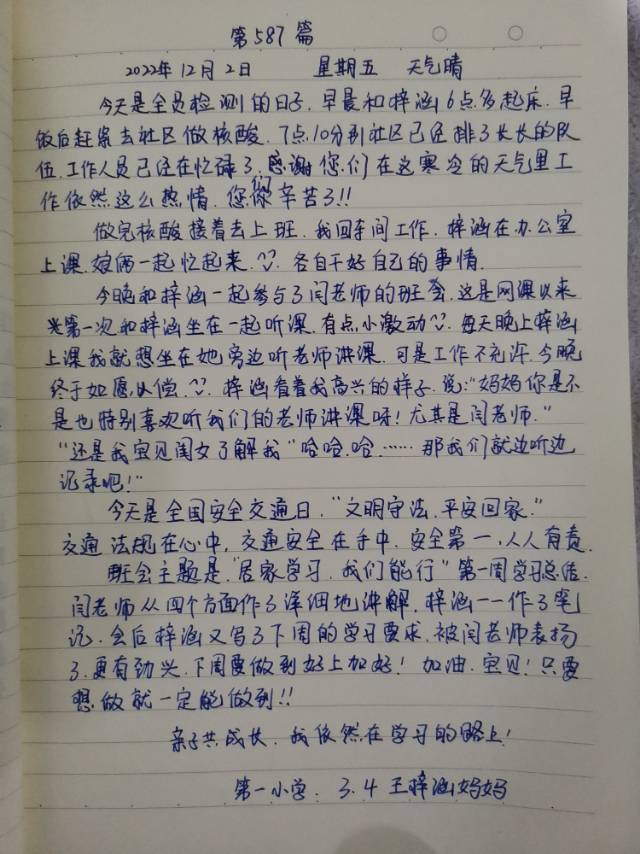 第587篇
2022年12月2日 星期五 天气晴
今天是全员检测的日子.早晨和梓涵6点多起床.早
饭后赶紧去社区做核酸.7点10分别社区已经排了长长的队
伍.工作人员已经在忙碌了.感谢您们在这寒冷的天气里工
作依然这么热情.您们辛苦了!!
做完核酸接着去上班.我回车间工作.梓涵在办公室
上课.娘俩一起忙起来.各自干好自己的事情.
今晚和梓涵一起参与了闫老师的班会.这是网课以来
第一次和梓涵坐在一起听课.有点小激动.每天晚上梓涵
上课我就想坐在她旁边听老师讲课.可是工作不允许.今晚
终于如愿以偿.梓涵看着我高兴的样子.说:"妈妈你是不
是也特别喜欢听我们的老师讲课呀!尤其是闫老师."
"还是我宝贝闺女了解我"哈哈.哈……那我们就边听边
记录吧!"
今天是全国安全交通日."文明守法.平安回家."
交通法规在心中,交通安全在手中.安全第一,人人有责.
班会主题是"居家学习.我们能行"第一周学习总结.
闫老师从四个方面作了详细地讲解.梓涵一一作了笔
记.会后梓涵又写了下周的学习要求.被闫老师表扬
了.更有劲兴.下周要做到好上加好!加油.宝贝!只要
想做就一定能做到!!
亲子共成长.我依然在学习的路上!
第一小学.3.4王梓涵妈妈